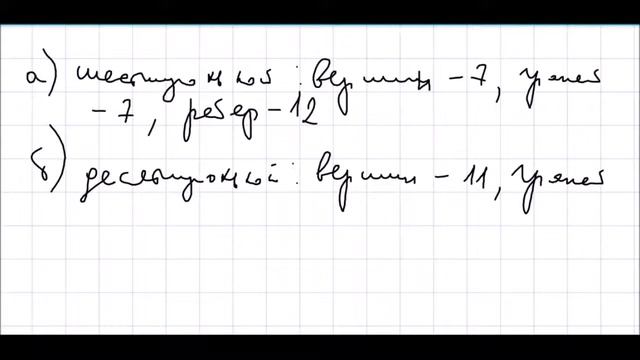 а) шестиугольной: вершин - 7, граней
- 7, ребер - 12
б) десятиугольной: вершин - 11, граней